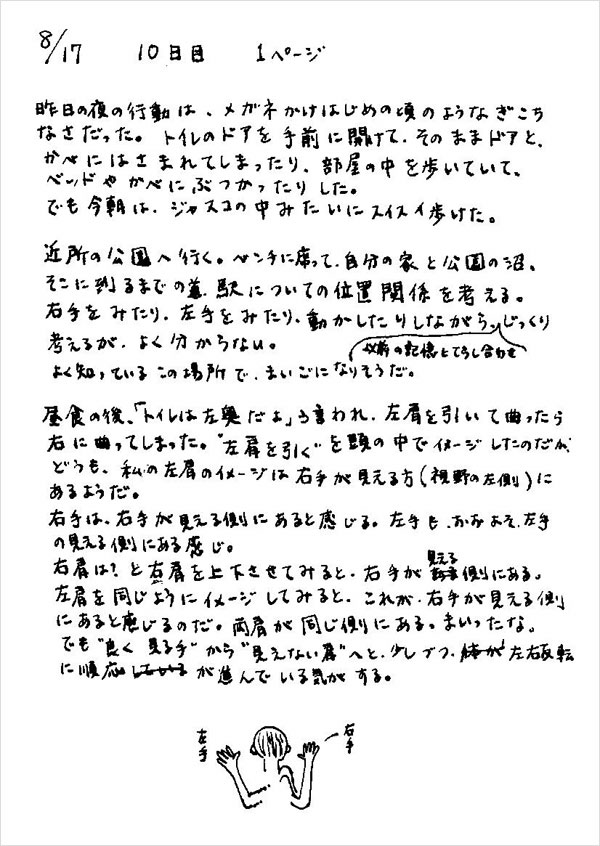 8/17 10日目 1ページ
昨日の夜の行動は、メガネかけはじめの頃のようなぎこち
なさだった。トイレのドアを手前に開けて、そのままドアと、
かべにはさまれてしまったり、部屋の中を歩いていて、
ベッドやかべにぶつかったりした。
でも今朝は、ジャスコの中みたいにスイスイ歩けた。
近所の公園へ行く。ベンチに座って、自分の家と公園の沼。
そこに到るまでの道、駅についての位置関係を考える。
右手をみたり、左手をみたり、動かしたりしながら、じっくり
以前の記憶とてらし合わせ
考えるが、よく分からない。
よく知っているこの場所で、まいごになりそうだ。
昼食の後、「トイレは左奥だよ」と言われ、左肩を引いて曲ったら
右に曲ってしまった。"左肩を引く"を頭の中でイメージしたのだが、
どうも、私の左肩のイメージは右手が見える方(視野の左側)に
あるようだ。
右手は、右手が見える側にあると感じる。左手も、おおよそ、左手
の見える側にある感じ。
右肩は?と右肩を上下させてみると、右手が見える側にある。
左肩を同じようにイメージしてみると、これが、右手が見える側
にあると感じるのだ。両肩が同じ側にある。まいったな。
でも"良く見る手"から"見えない肩"へと、少しづつ、左右反転
に順応が進んでいる気がする。
左手
右手